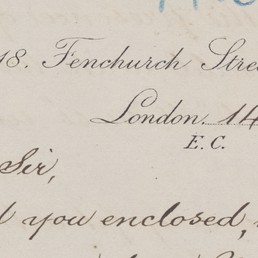 18. Fenchurch Stre
London. 14
E. C.
Sir,
you enclosed,